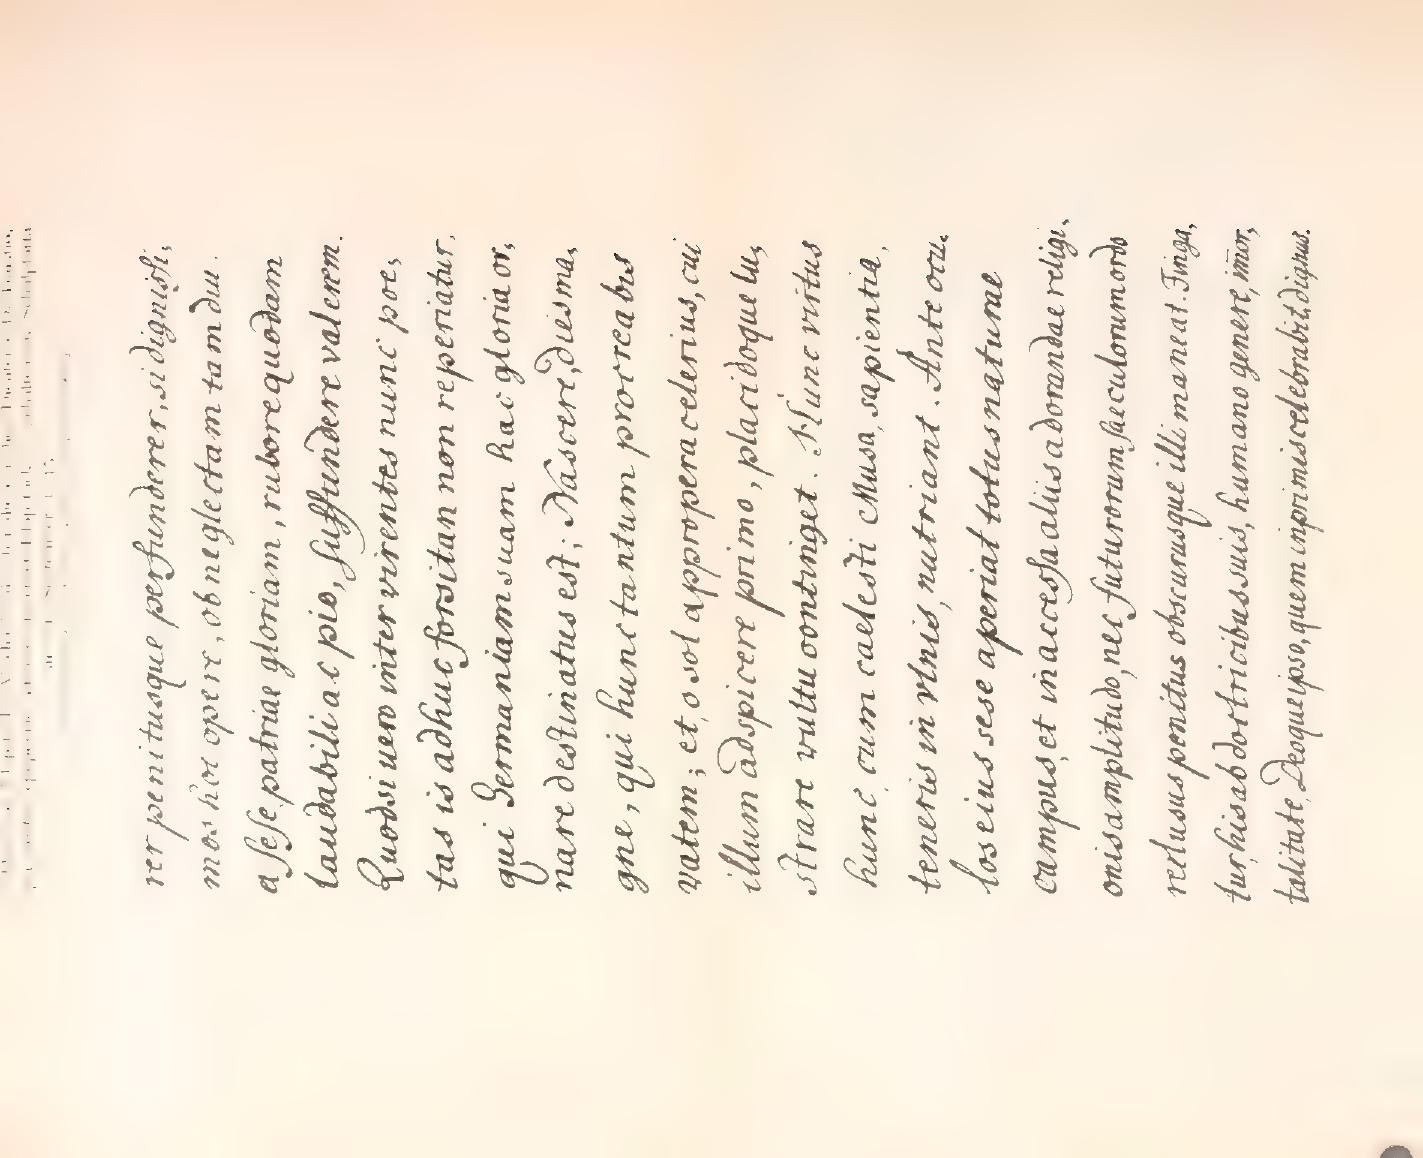 rer penitusque perfunderer, si dignissi,
mos hoc opere, ob neglectam tam diu
a sese patriae gloriam, rubore quodam
laudabili ac pio, suffundere valerem.
Quodsi uero inter virentes nunc poe,
tas is adhuc forsitan non reperiatur,
qui Germaniam suam hac gloria or,
nare destinatus est; Nascere, dies ma,
gne, qui hunc tantum procreabis
vatem; et, o sol appropera celerius, cui
illum adspicere primo, placidoque lu,
strare vultu continget. Hunc virtus
hunc, cum caelesti Musa, sapientia,
teneris in vlnis, nutriant. Ante ocu,
los eius sese aperiat totus naturae
campus, et inaccessa aliis adorandae religi,
onis amplitudo, nec futurorum saeculorum ordo
reclusus penitus obscurusque illi maneat. Finga,
tur, his ab doctricibus suis, humano genere, im̄or,
talitate, Deoque ipso, quem inprimis celebrabit, dignus.